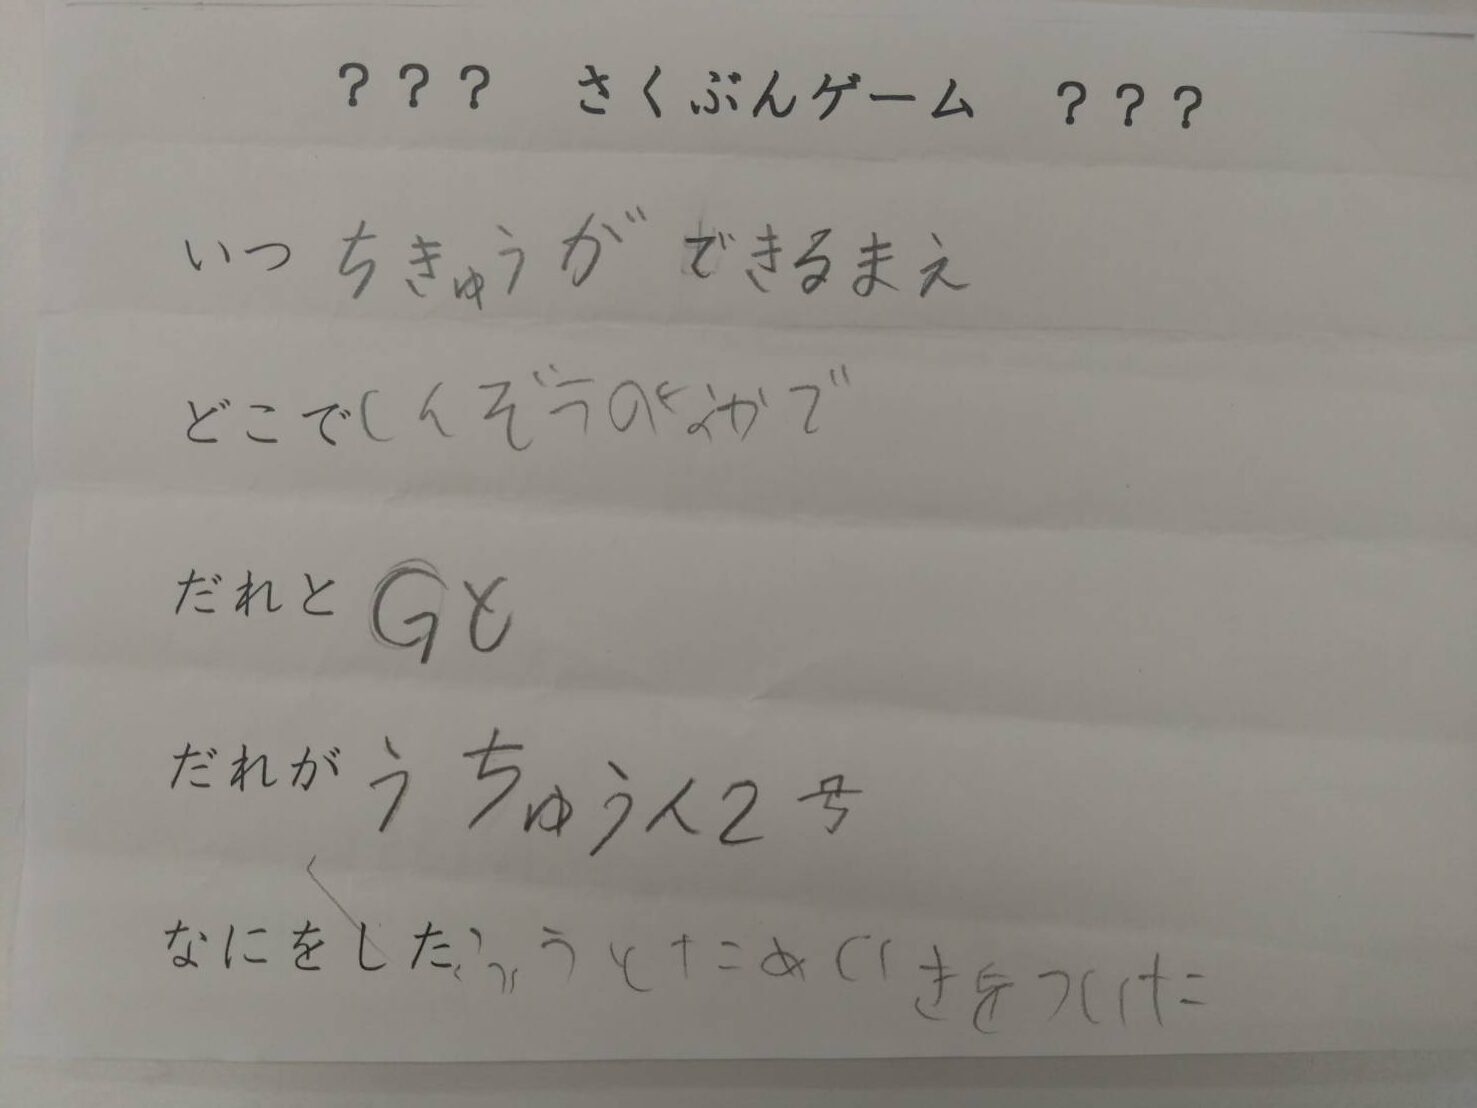 ??? さくぶんゲーム ???
いつ ちきゅうが できるまえ
どこで しんぞうのなかで
だれと Gと
だれが うちゅう人2号
なにをした ふうとためいきをつけた